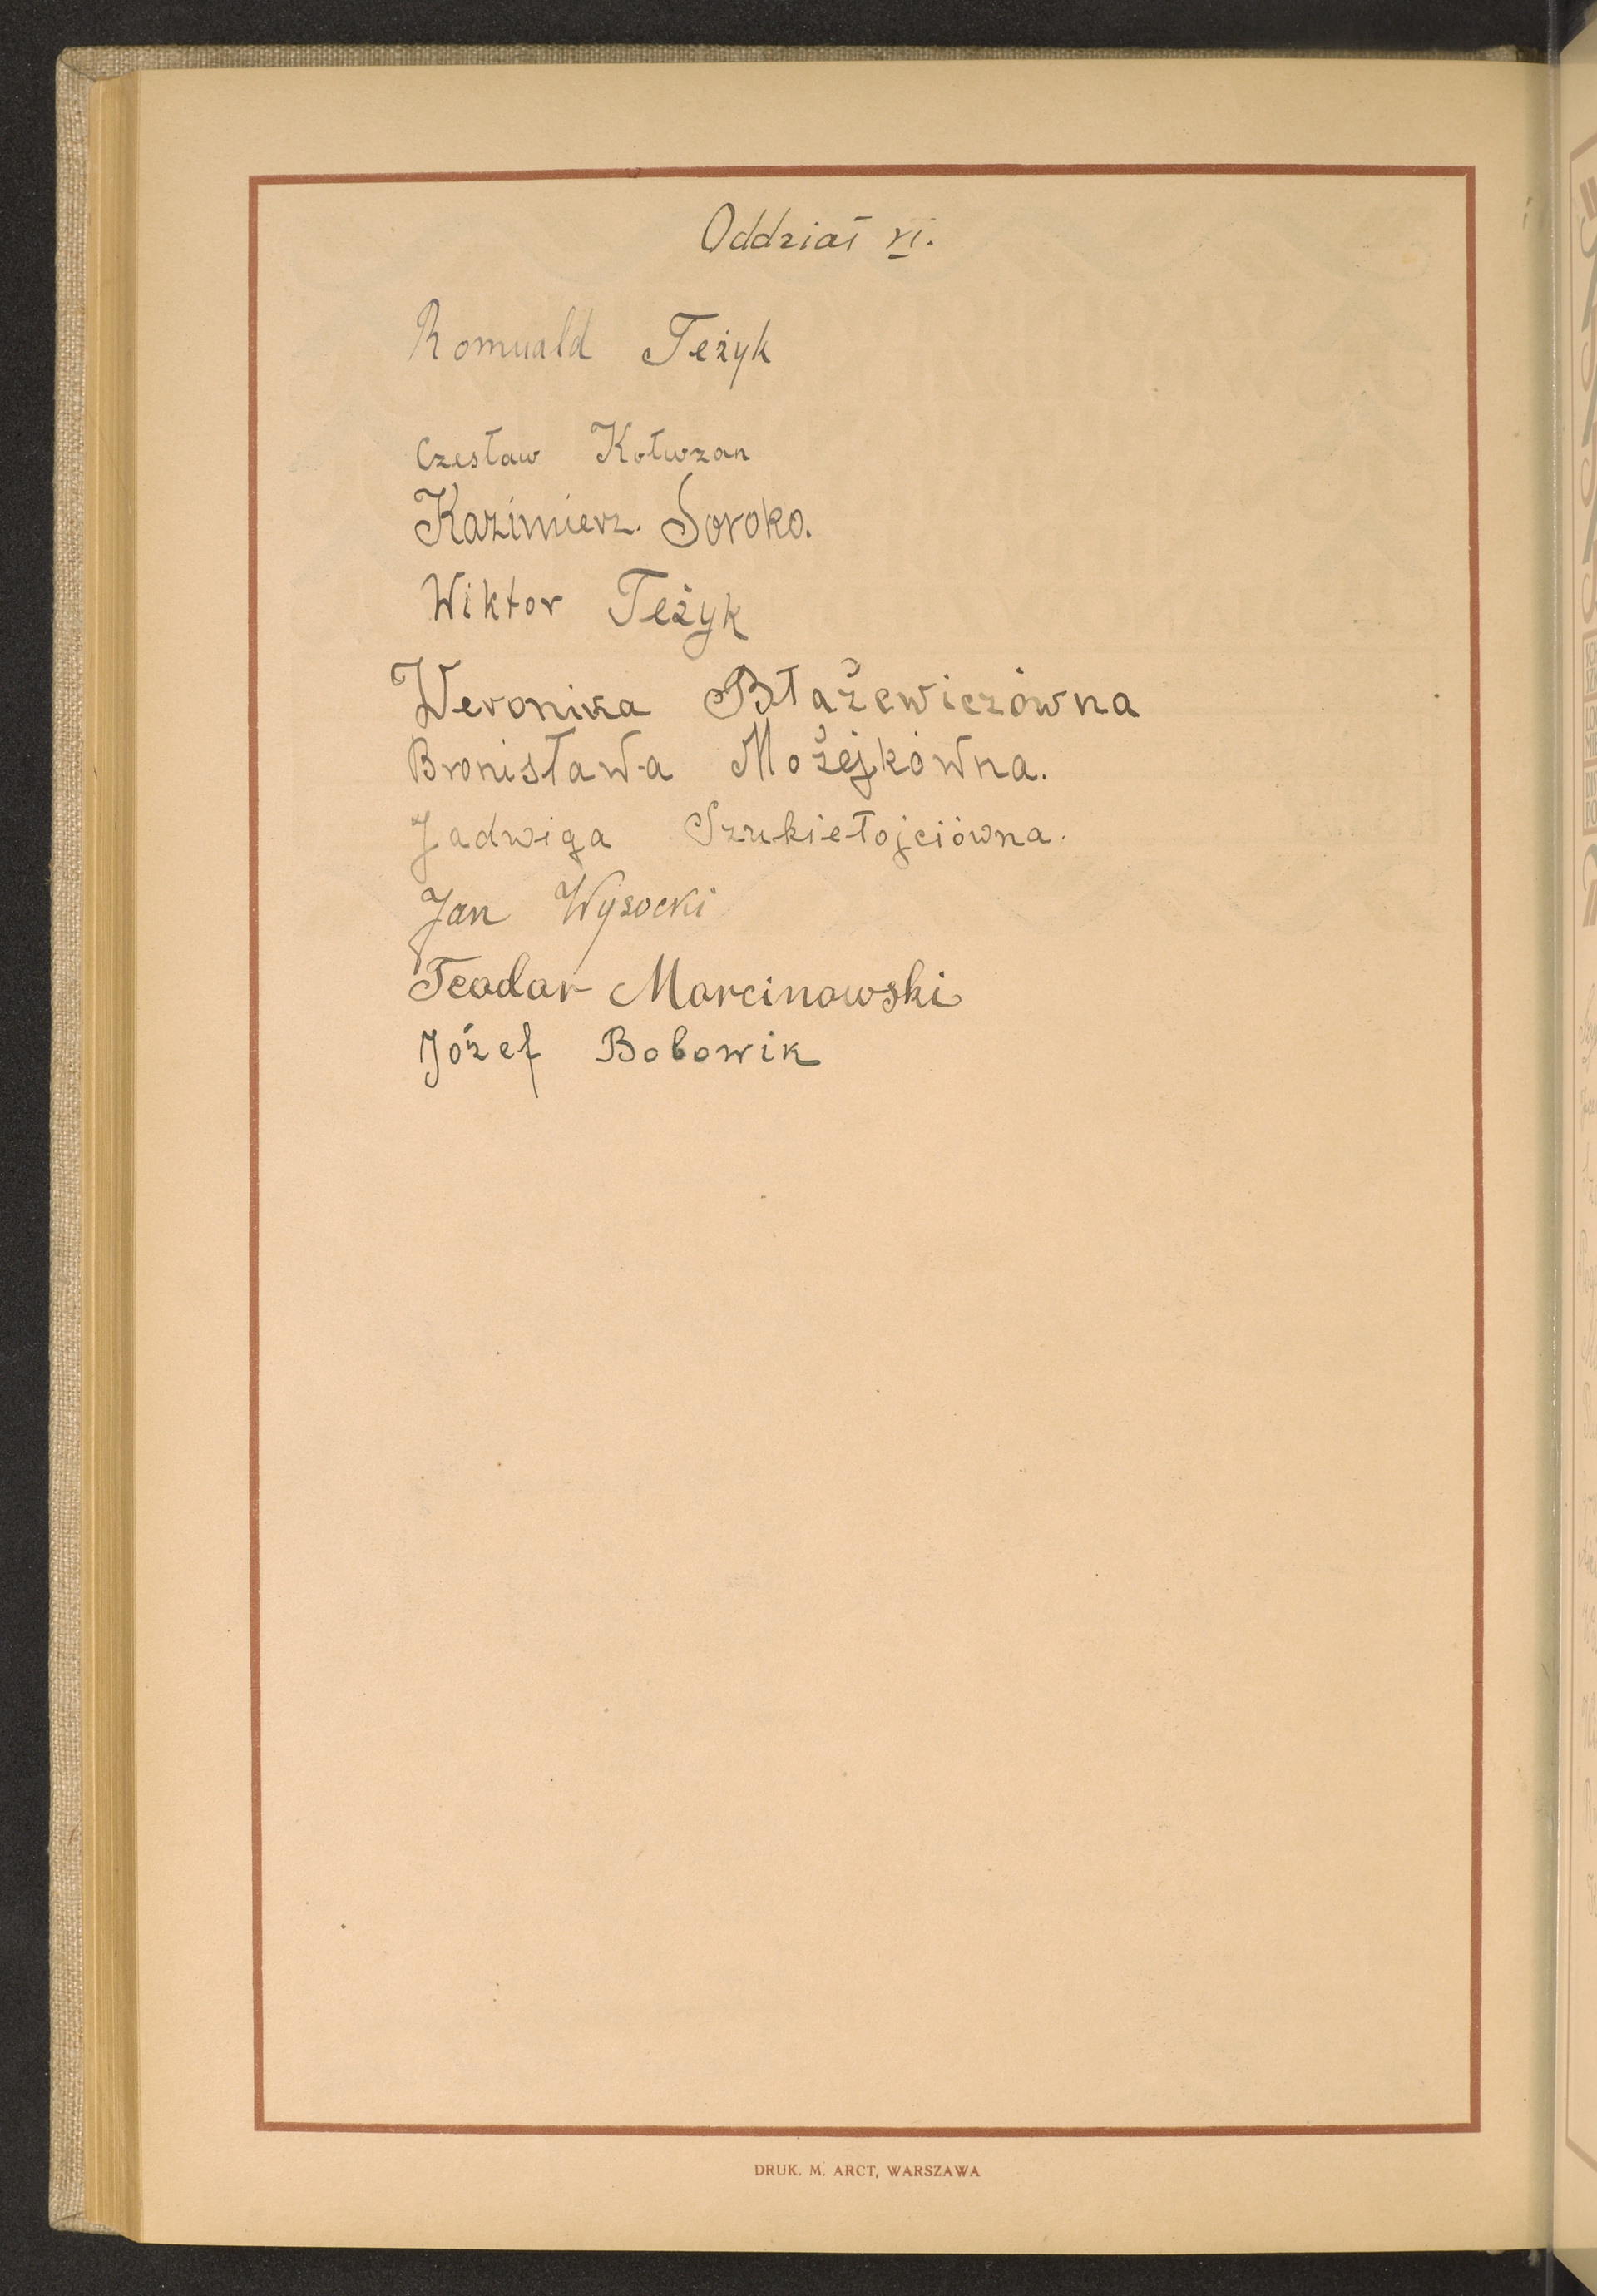 Oddział VI.
Romuald Teżyk
Czesław Kotwzan
Kazimierz. Soroko.
Wiktor Teżyk
Weronika Błażewiczówna
Bronisława Możejkówna.
Jadwiga Szukiełojciówna.
Jan Wysocki
Teodor Marcinowski
Józef Bobowik
DRUK. M. ARCT, WARSZAWA